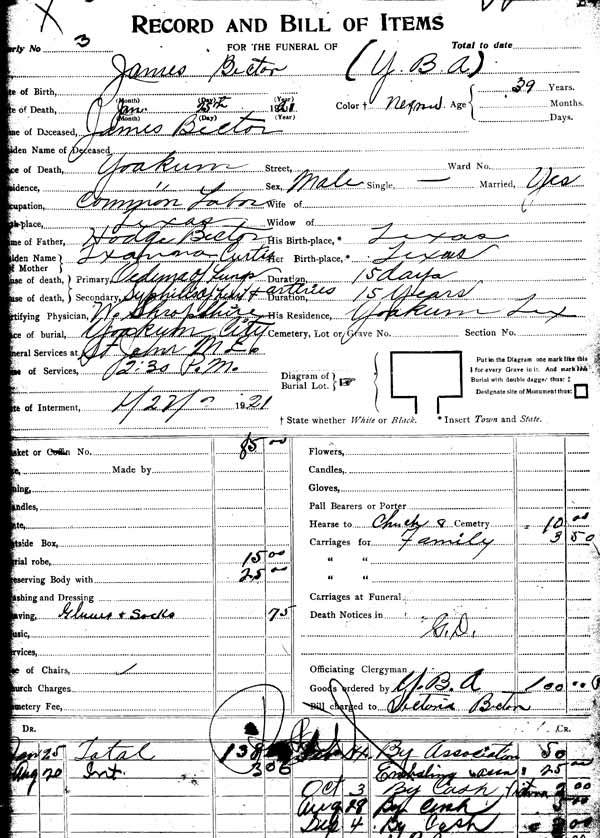 RECORD AND BILL OF ITEMS
rly No 3 FOR THE FUNERAL OF Total to date
James Bector (Y.B.A)
te of Birth, 39 Years.
(Month) (Day) (Year) Color † Age Months.
te of Death, Jan 25th 1921
(Month) (Day) (Year) Days.
me of Deceased, James Bector
iden Name of Deceased,
ce of Death, Yoakum Street, Ward No.
sidence, " Sex, Male Single, — Married, Yes
cupation, Common Labor Wife of
th-place, Texas Widow of
me of Father, Hodge Bector His Birth-place,* Texas
iden Name of Mother Curtis Her Birth-place,* Texas
use of death, Primary, Oedema of Lungs Duration, 15 days
use of death, Secondary, arteries Duration, 15 Years
rtifying Physician, W. Shropshire His Residence, Yoakum Tex
ce of burial, Yoakum City Cemetery, Lot or Grave No. Section No.
neral Services at St John M.E.
e of Services, 2:30 P.M.
Diagram of Burial Lot.
Put in the Diagram one mark like this
| for every Grave in it. And mark this
Burial with double dagger thus: ‡
Designate site of Monument thus:
te of Interment, 1921
† State whether White or Black. * Insert Town and State.
sket or Coffin No. 85 00 Flowers,
Made by Candles,
ning, Gloves,
ndles, Pall Bearers or Porter
ate, Hearse to Church & Cemetry 10 00
tside Box, Carriages for Family 3 50
rial robe, 15 00 " "
eserving Body with 25 00 " "
ashing and Dressing Carriages at Funeral
aving, Gloves & Socks 75 Death Notices in
usic, G.D.
rvices,
e of Chairs, Officiating Clergyman
urch Charges Goods ordered by Y.B.A 100 00
metery Fee, Bill charged to Bector
DR. CR.
Jan 25 Total By Association 50
Aug 20 Int. 306 25 00
Oct 3 By Cash
Aug 28 By Cash
Dec 4 By Cash